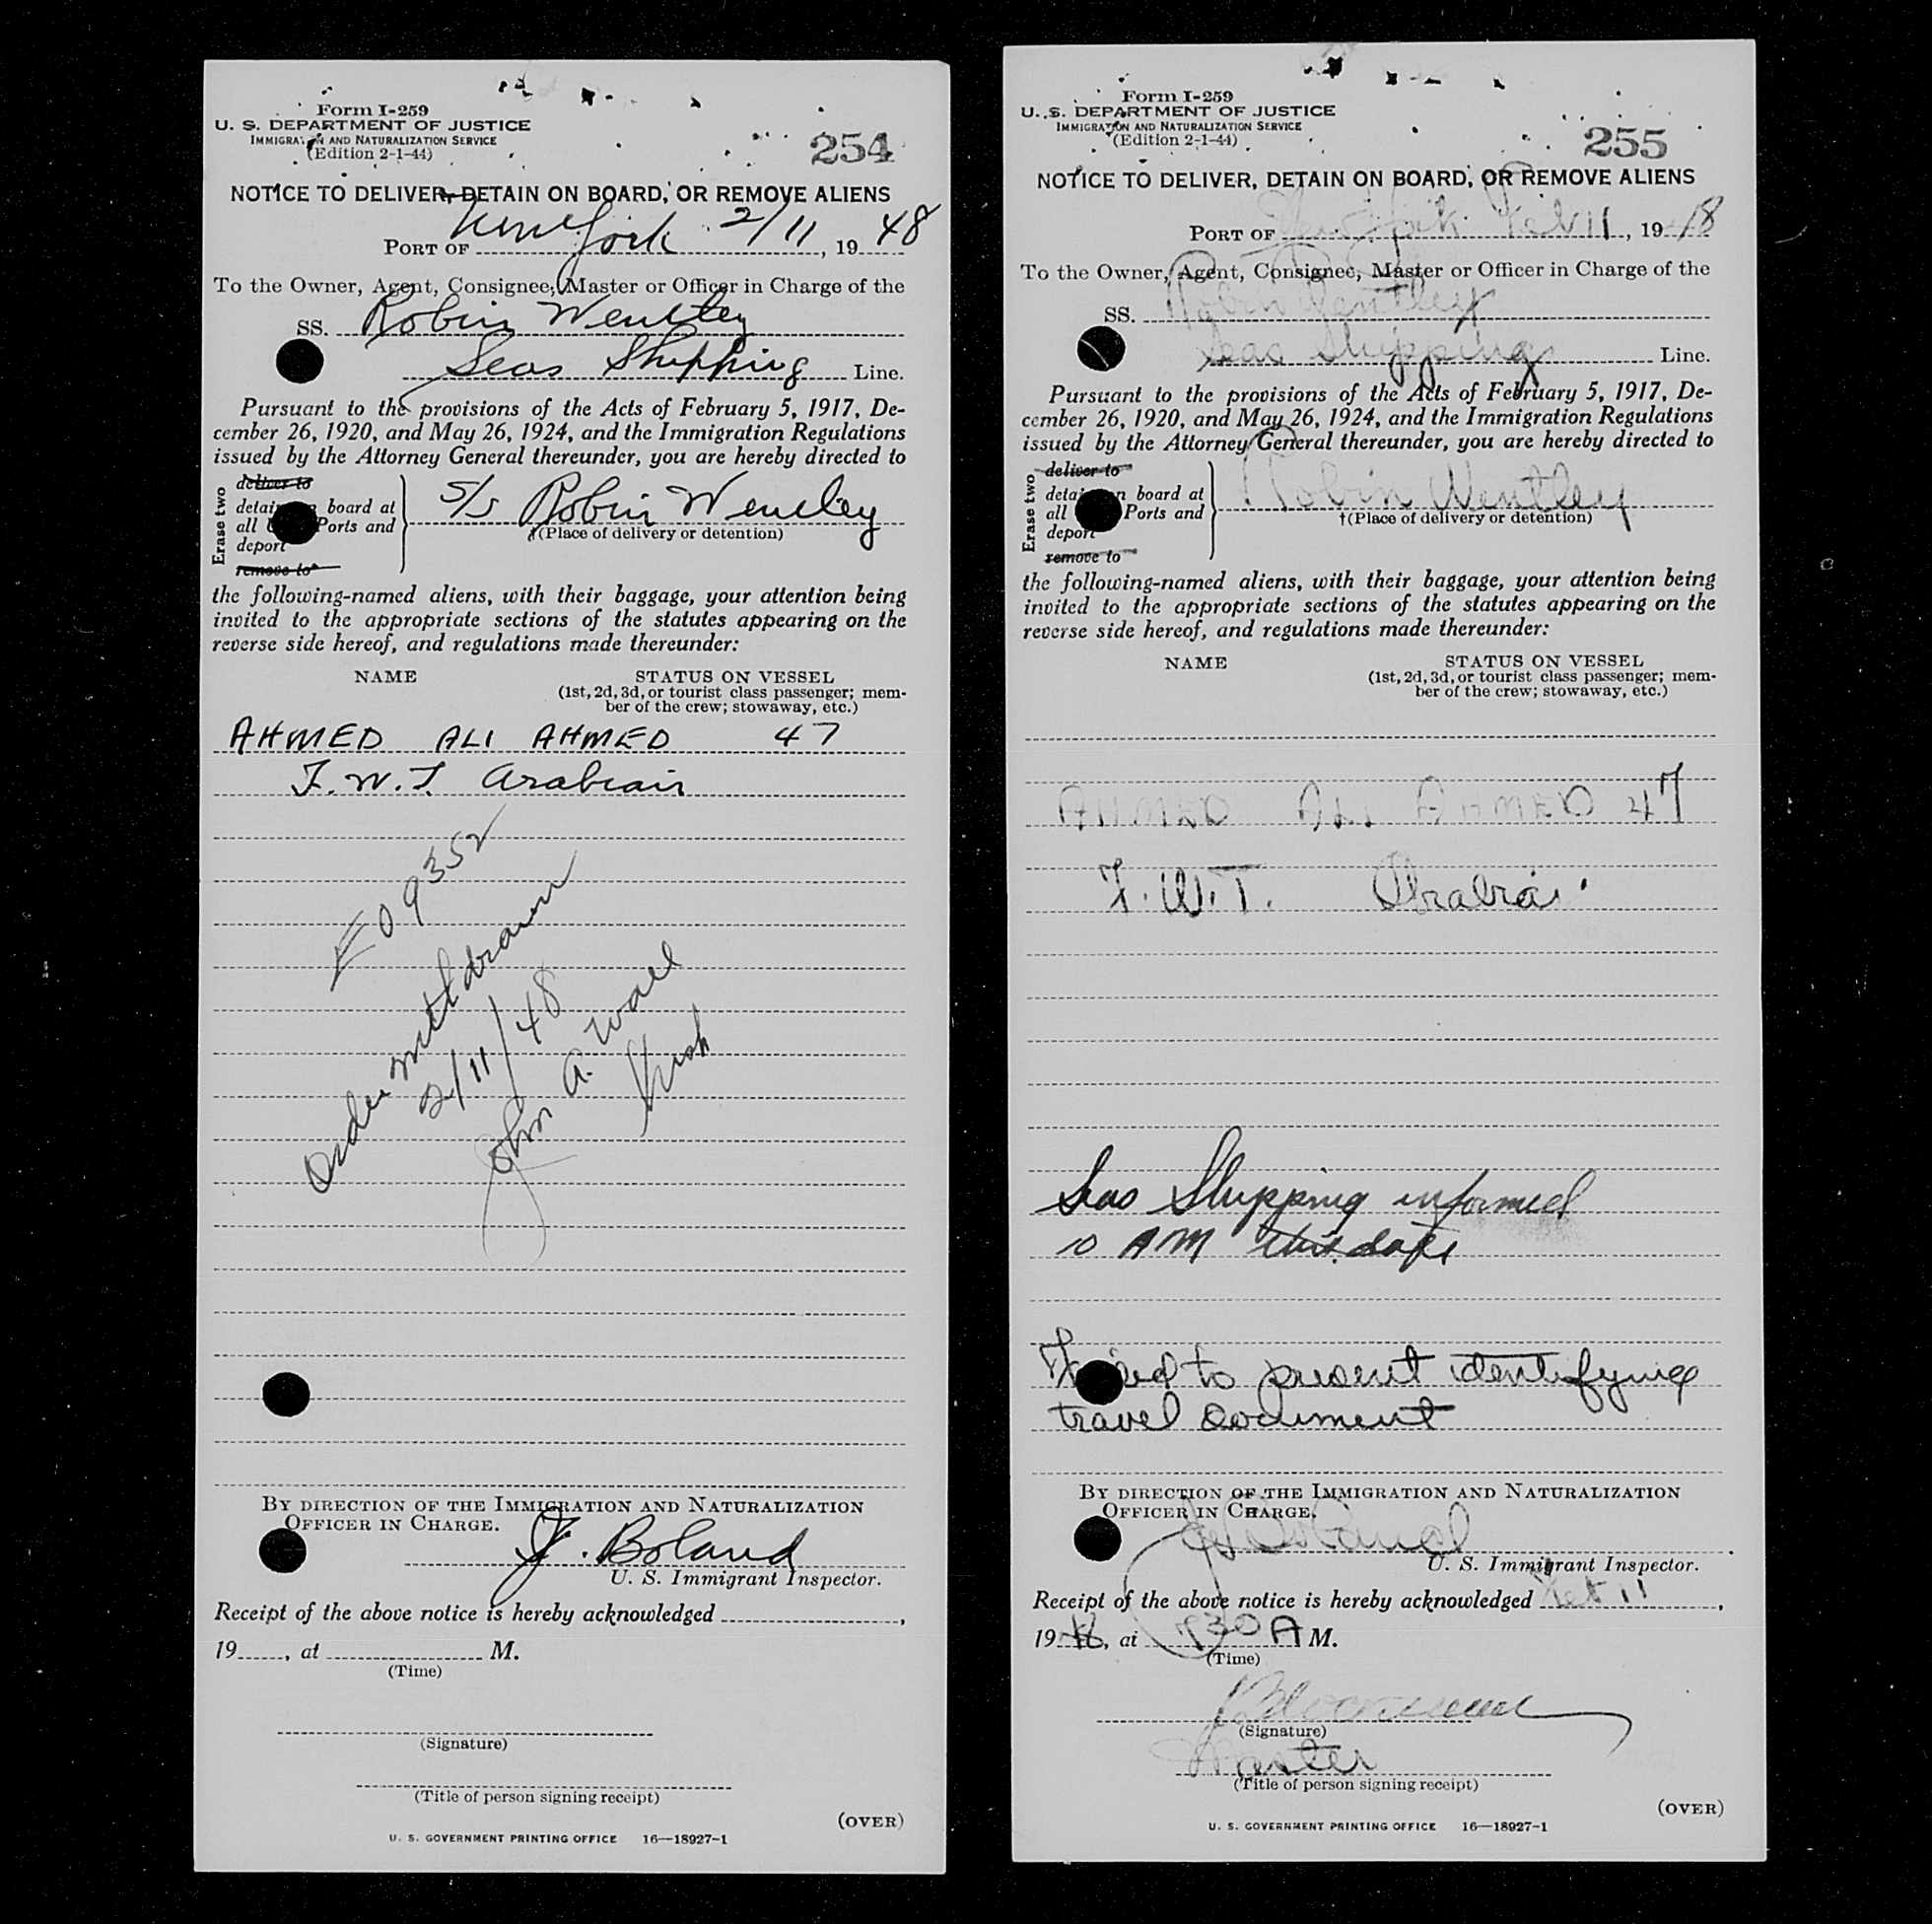 Form I-259
U. S. DEPARTMENT OF JUSTICE
IMMIGRATION AND NATURALIZATION SERVICE
(Edition 2-1-44)
254
NOTICE TO DELIVER, DETAIN ON BOARD, OR REMOVE ALIENS
PORT OF New York 2/11, 1948
To the Owner, Agent, Consignee, Master or Officer in Charge of the
SS. Robin Wentley
Seas Shipping Line.
Pursuant to the provisions of the Acts of February 5, 1917, De-
cember 26, 1920, and May 26, 1924, and the Immigration Regulations
issued by the Attorney General thereunder, you are hereby directed to
Erase two
deliver to
detain on board at
all U.S. Ports and
deport
remove to*
S/S Robin Wentley
†(Place of delivery or detention)
the following-named aliens, with their baggage, your attention being
invited to the appropriate sections of the statutes appearing on the
reverse side hereof, and regulations made thereunder:
NAME STATUS ON VESSEL
(1st, 2d, 3d, or tourist class passenger; mem-
ber of the crew; stowaway, etc.)
AHMED ALI AHMED 47
F.W.T. Arabian
E09352
Order withdrawn
2/11/48
John A. Wall
BY DIRECTION OF THE IMMIGRATION AND NATURALIZATION
OFFICER IN CHARGE.
J. Boland
U. S. Immigrant Inspector.
Receipt of the above notice is hereby acknowledged ,
19 , at M.
(Time)
(Signature)
(Title of person signing receipt)
(OVER)
U. S. GOVERNMENT PRINTING OFFICE 16—18927-1
Form I-259
U. S. DEPARTMENT OF JUSTICE
IMMIGRATION AND NATURALIZATION SERVICE
(Edition 2-1-44)
255
NOTICE TO DELIVER, DETAIN ON BOARD, OR REMOVE ALIENS
PORT OF New York Feb 11, 1948
To the Owner, Agent, Consignee, Master or Officer in Charge of the
SS. Robin Wentley
Seas Shipping Line.
Pursuant to the provisions of the Acts of February 5, 1917, De-
cember 26, 1920, and May 26, 1924, and the Immigration Regulations
issued by the Attorney General thereunder, you are hereby directed to
Erase two
deliver to
detain on board at
all U.S. Ports and
deport
remove to
Robin Wentley
†(Place of delivery or detention)
the following-named aliens, with their baggage, your attention being
invited to the appropriate sections of the statutes appearing on the
reverse side hereof, and regulations made thereunder:
NAME STATUS ON VESSEL
(1st, 2d, 3d, or tourist class passenger; mem-
ber of the crew; stowaway, etc.)
AHMED ALI AHMED 47
F.W.T. Arabia
Seas Shipping informed
10 AM this date
Failed to present identifying
travel document
BY DIRECTION OF THE IMMIGRATION AND NATURALIZATION
OFFICER IN CHARGE.
J. Boland
U. S. Immigrant Inspector.
Receipt of the above notice is hereby acknowledged Feb 11,
1948, at 730 A M.
(Time)
(Signature)
Master
(Title of person signing receipt)
(OVER)
U. S. GOVERNMENT PRINTING OFFICE 16—18927-1